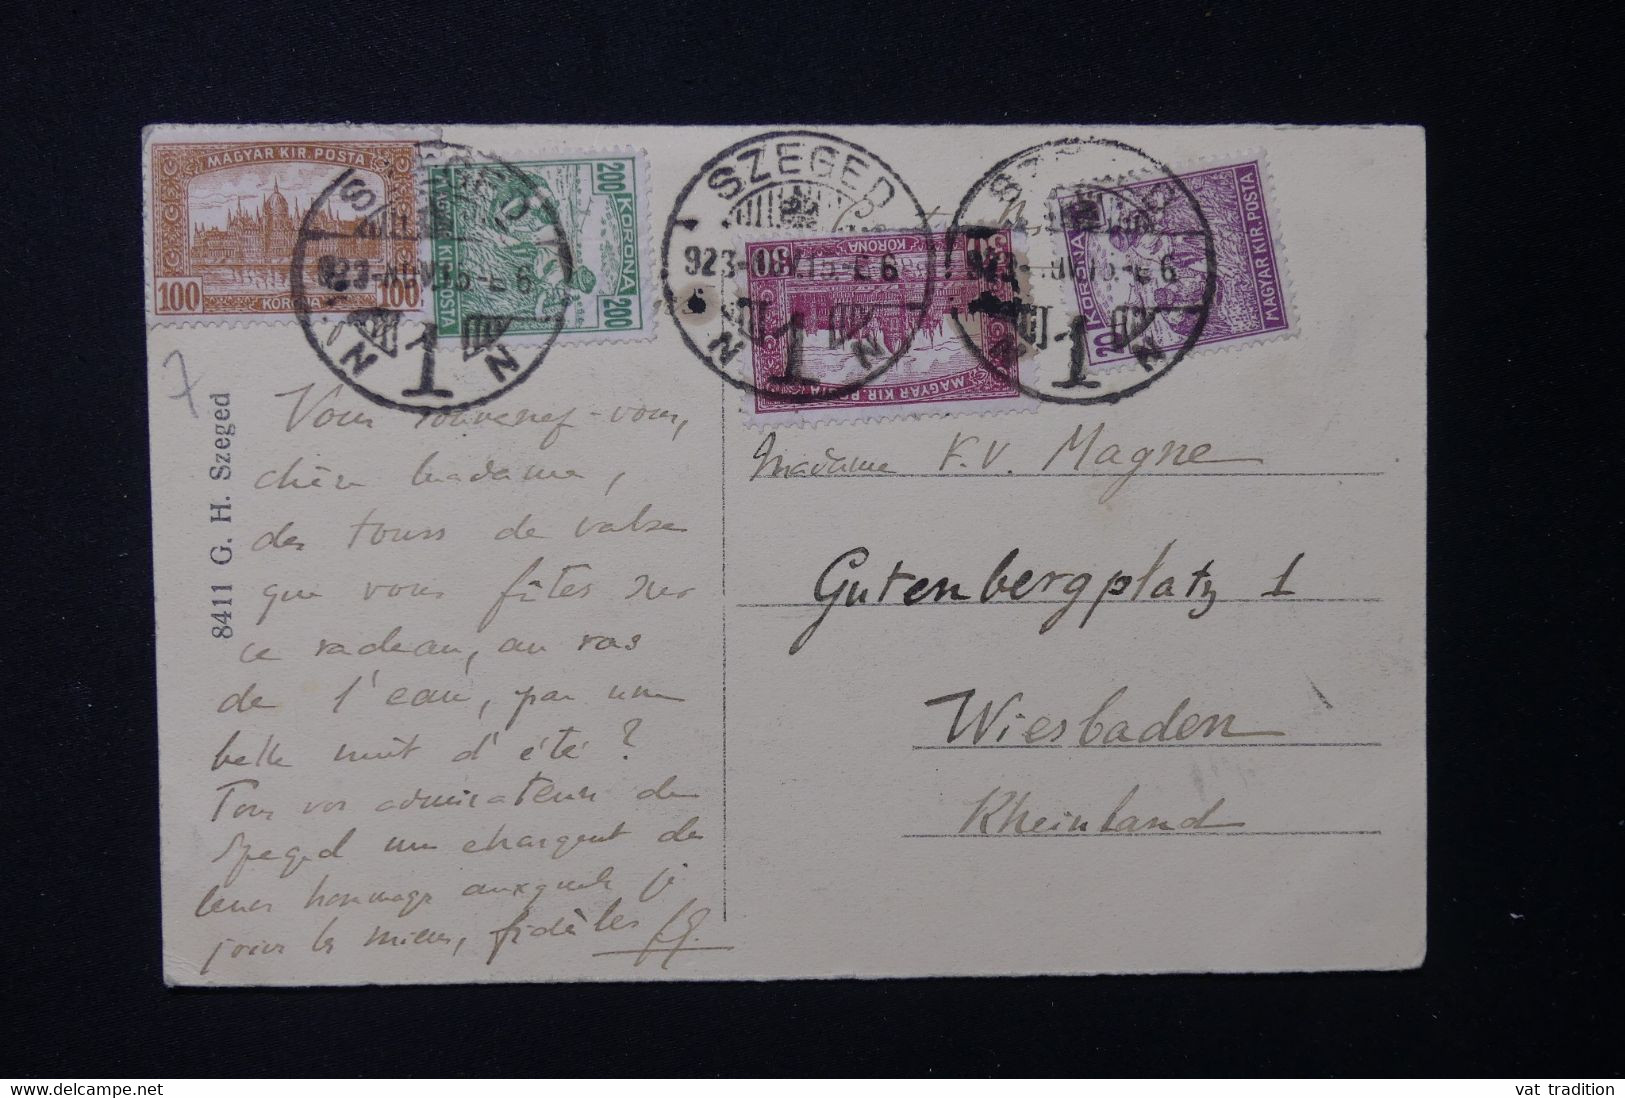 MAGYAR KIR. POSTA
100 KORONA 100
200 KORONA 200
MAGYAR KIR. POSTA
SZEGED
1
N N
SZEGED
923
6
N 1 N
30 KORONA 30
MAGYAR KIR. POSTA
SZEGED
6
N 1 N
20 KORONA
MAGYAR KIR. POSTA
7
8411 G. H. Szeged
Vous souvenez-vous,
chère Madame,
des tours de valse
que vous fîtes sur
ce radeau, au ras
de l'eau, par une
belle nuit d'été?
Tous vos admirateurs de
Szeged me chargent de
leurs hommages auxquels je
joins les miens, fidèles
Madame F. V. Magne
Gutenbergplatz 1
Wiesbaden
Rheinland
vat tradition
delcampe.net